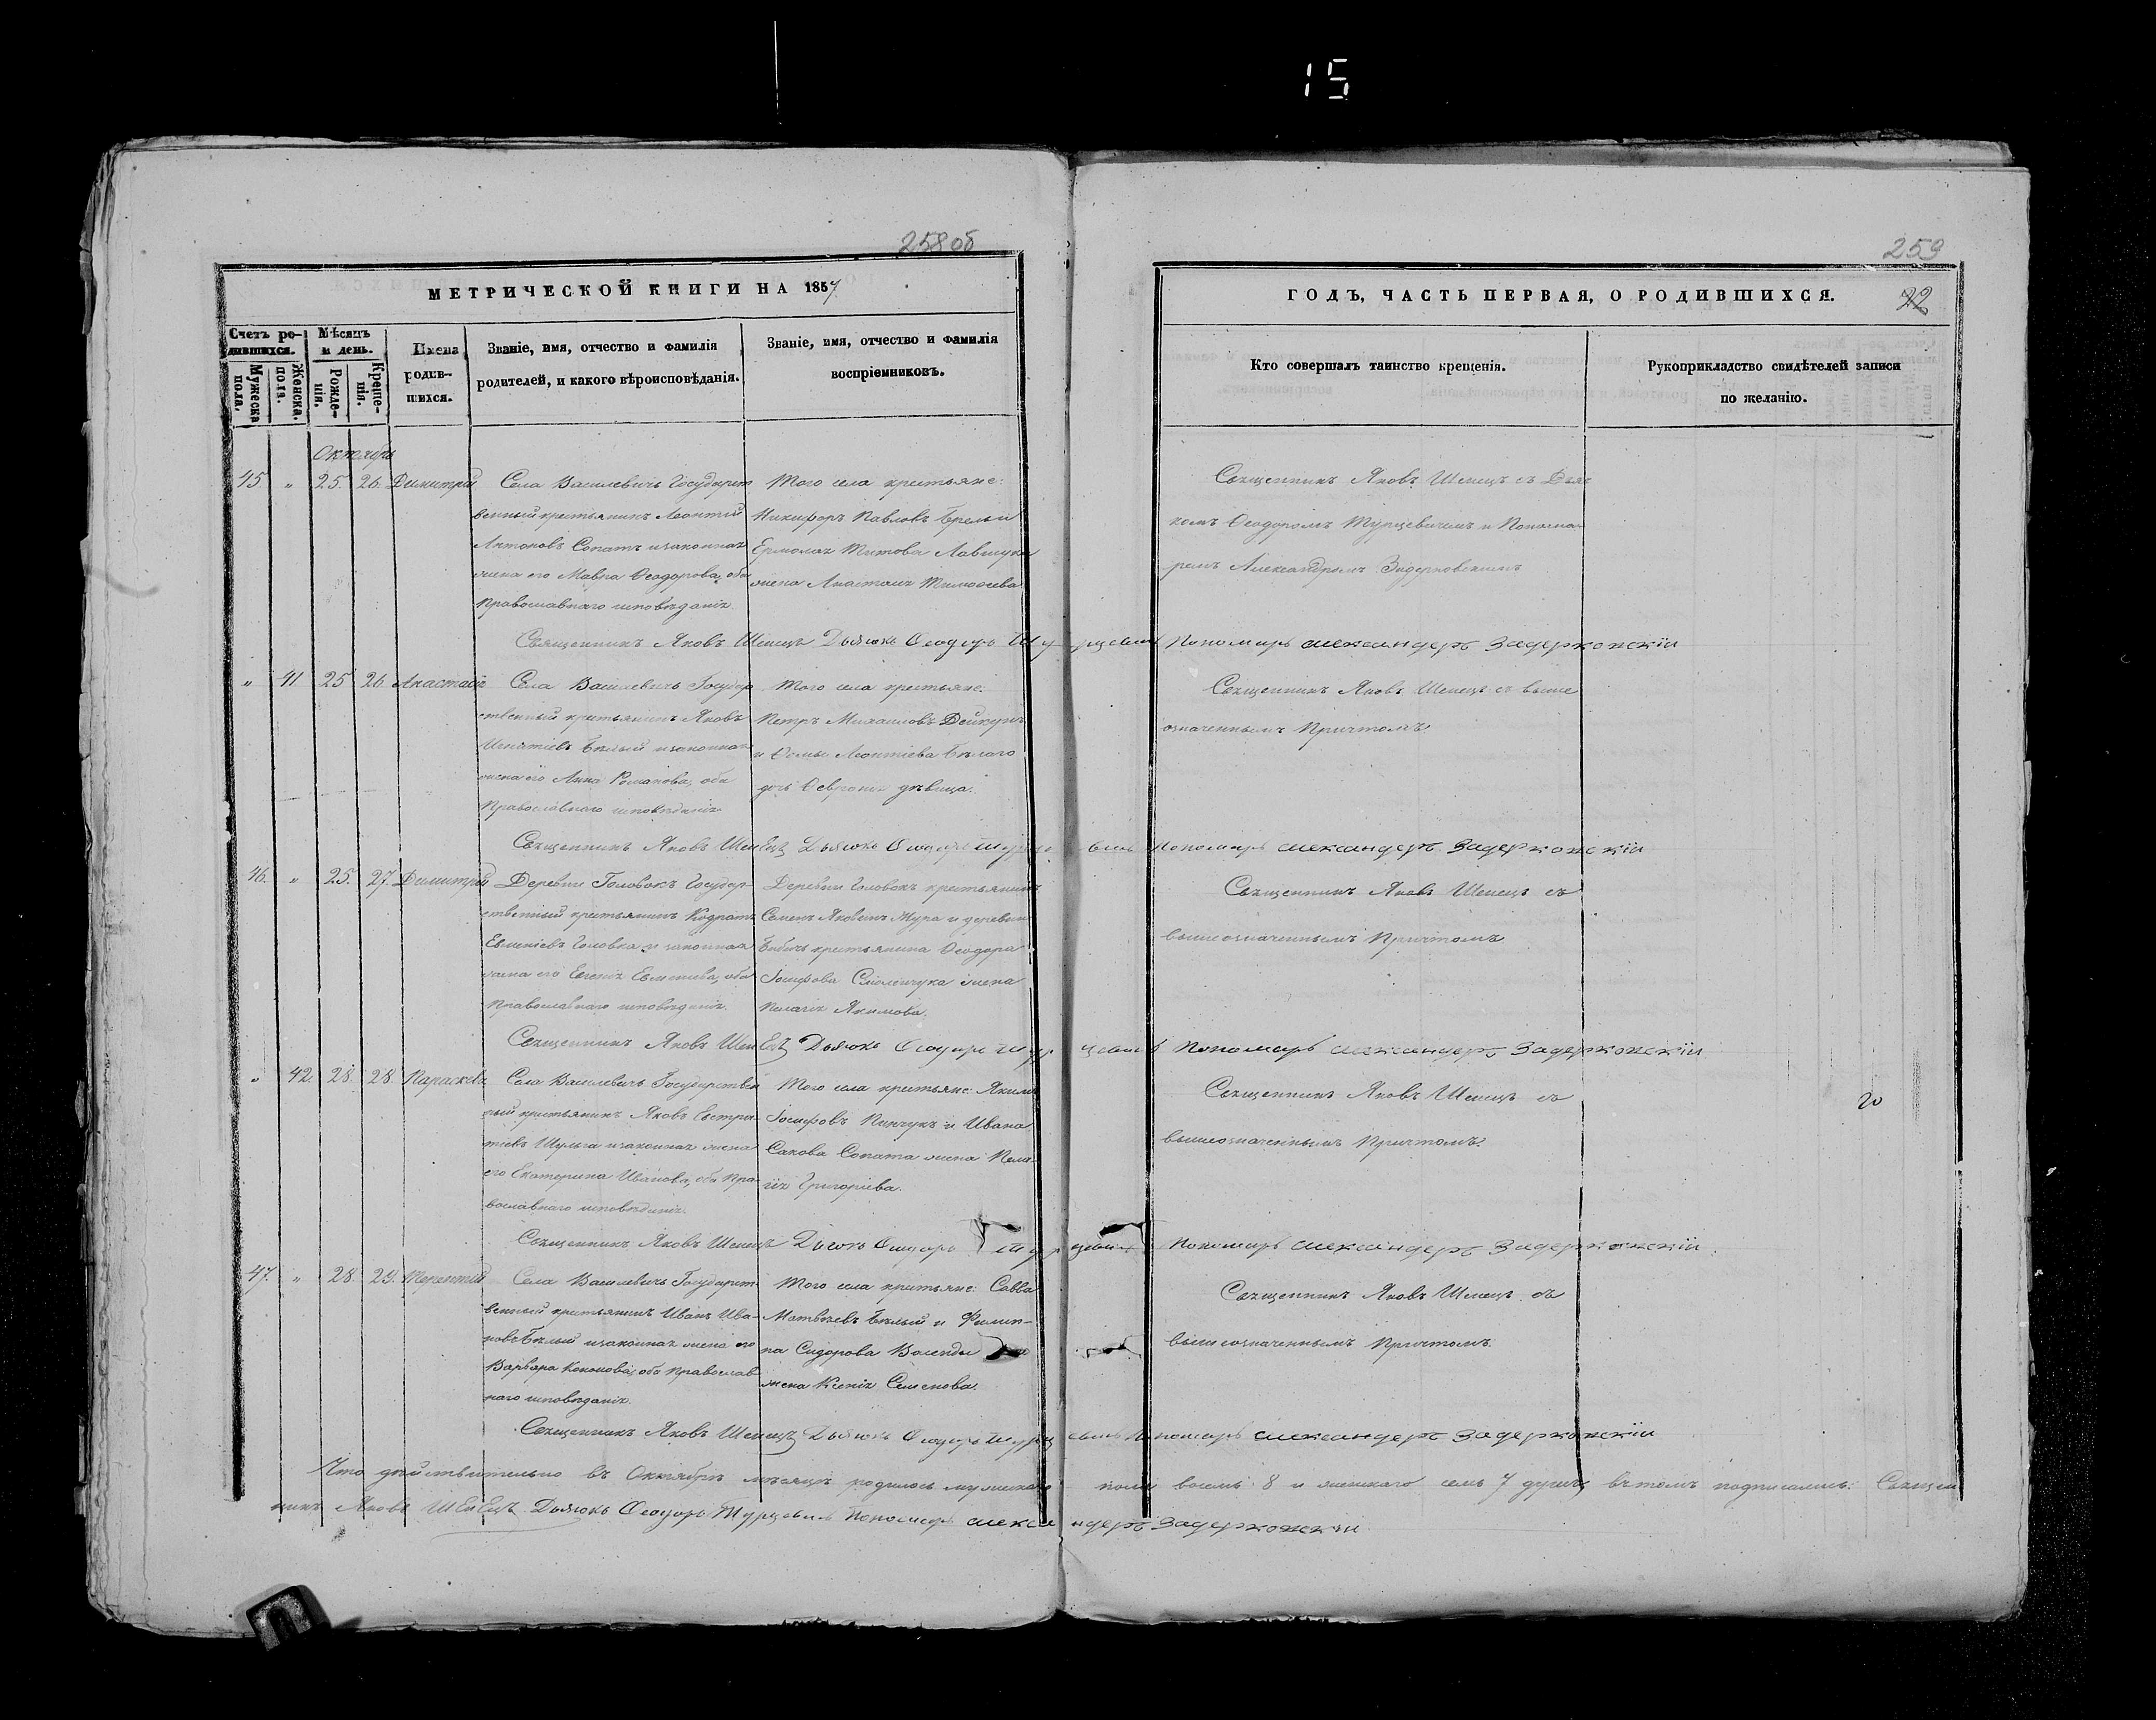 15
258 об
259
МЕТРИЧЕСКОЙ КНИГИ НА 1857
ГОДЪ, ЧАСТЬ ПЕРВАЯ, О РОДИВШИХСЯ.
22
Счетъ ро-
дившихся.
Мужеска
пола.
Женска.
пола.
Мѣсяцъ
и день.
Рожде-
нія.
Креще-
нія.
Имена
родив-
шихся.
Званіе, имя, отчество и фамилія
родителей, и какого вѣроисповѣданія.
Званіе, имя, отчество и фамилія
воспріемниковъ.
Кто совершалъ таинство крещенія.
Рукоприкладство свидѣтелей записи
по желанію.
Октябрь
45 " 25. 26. Димитрій
Села Василевичъ Государст
венный крестьянинъ Леонтій
Антоновъ Сопатъ и законная
жена его Мавра Ѳеодорова, оба
Православнаго исповѣданія.
Того села крестьяне:
Никифоръ Павловъ
Ермолая Титова
жена Анастасія Тимоѳеева
Священникъ Яковъ Шепецъ съ Дьяч
комъ Ѳеодоромъ Турцевичемъ и Понома
ремъ Александромъ Задерковскимъ
Священникъ Яковъ Шепецъ Дьячокъ Ѳеодоръ Турцевичъ Пономарь Александеръ Задерковскій
" 41 25 26 Анастасія
Села Василевичъ Государ
ственный крестьянинъ Яковъ
Игнатіевъ Бѣлый и законная
жена его Анна Романова, оба
Православнаго исповѣданія
Того села крестьяне:
Петръ Михаиловъ Дейкунъ
и Ѳомы Леонтіева Бѣлаго
дочь Ѳевронія дѣвица.
Священникъ Яковъ Шепецъ съ выше
означеннымъ Причтомъ
Священникъ Яковъ Шепецъ Дьячокъ Ѳеодоръ Турцевичъ Пономарь Александеръ Задерковскій
46. " 25. 27. Димитрій
Деревни Головокъ Государ-
ственный крестьянинъ Кодратъ
Евменіевъ Головка и законная
жена его Евгенія, оба
Православнаго исповѣданія.
Деревни Головокъ крестьянинъ
Семенъ Яковинъ Мура и деревни
крестьянина Ѳеодора
Іосифова Смоленчука жена
Пелагія Якимова.
Священникъ Яковъ Шепецъ съ
вышеозначеннымъ Причтомъ
Священникъ Яковъ Шепецъ Дьячокъ Ѳеодоръ Турцевичъ Пономарь Александеръ Задерковскій
" 42. 28. 28. Параскева
Села Василевичъ Государствен
ный крестьянинъ Яковъ Евстра
тіевъ Шульга и законная жена
его Екатерина Иванова, оба Пра-
вославнаго исповѣданія.
Того села крестьяне: Якимъ
Іосифовъ Пинчукъ и Ивана
Савова Сопата жена Пела-
гія Григоріева.
Священникъ Яковъ Шепецъ съ
вышеозначеннымъ Причтомъ.
20
Священникъ Яковъ Шепецъ Дьячокъ Ѳеодоръ Турцевичъ Пономарь Александеръ Задерковскій.
47. " 28. 29. Терентій
Села Василевичъ Государст
венный крестьянинъ Иванъ Ива-
новъ Бѣлый и законная жена его
Варвара Кононова, оба Православ
наго исповѣданія.
Того села крестьяне: Савва
Матвѣевъ Бѣлый и Филип-
па Сидорова
жена Ксенія Семенова.
Священникъ Яковъ Шепецъ съ
вышеозначеннымъ Причтомъ.
Священникъ Яковъ Шепецъ Дьячокъ Ѳеодоръ Турцевичъ Пономарь Александеръ Задерковскій
Что дѣйствительно въ Октябрѣ мѣсяцѣ родилось мужескаго пола восемь 8 и женскаго семь 7 душъ, въ томъ подписались: Священ
никъ Яковъ Шепецъ Дьячокъ Ѳеодоръ Турцевичъ Пономарь Александеръ Задерковскій